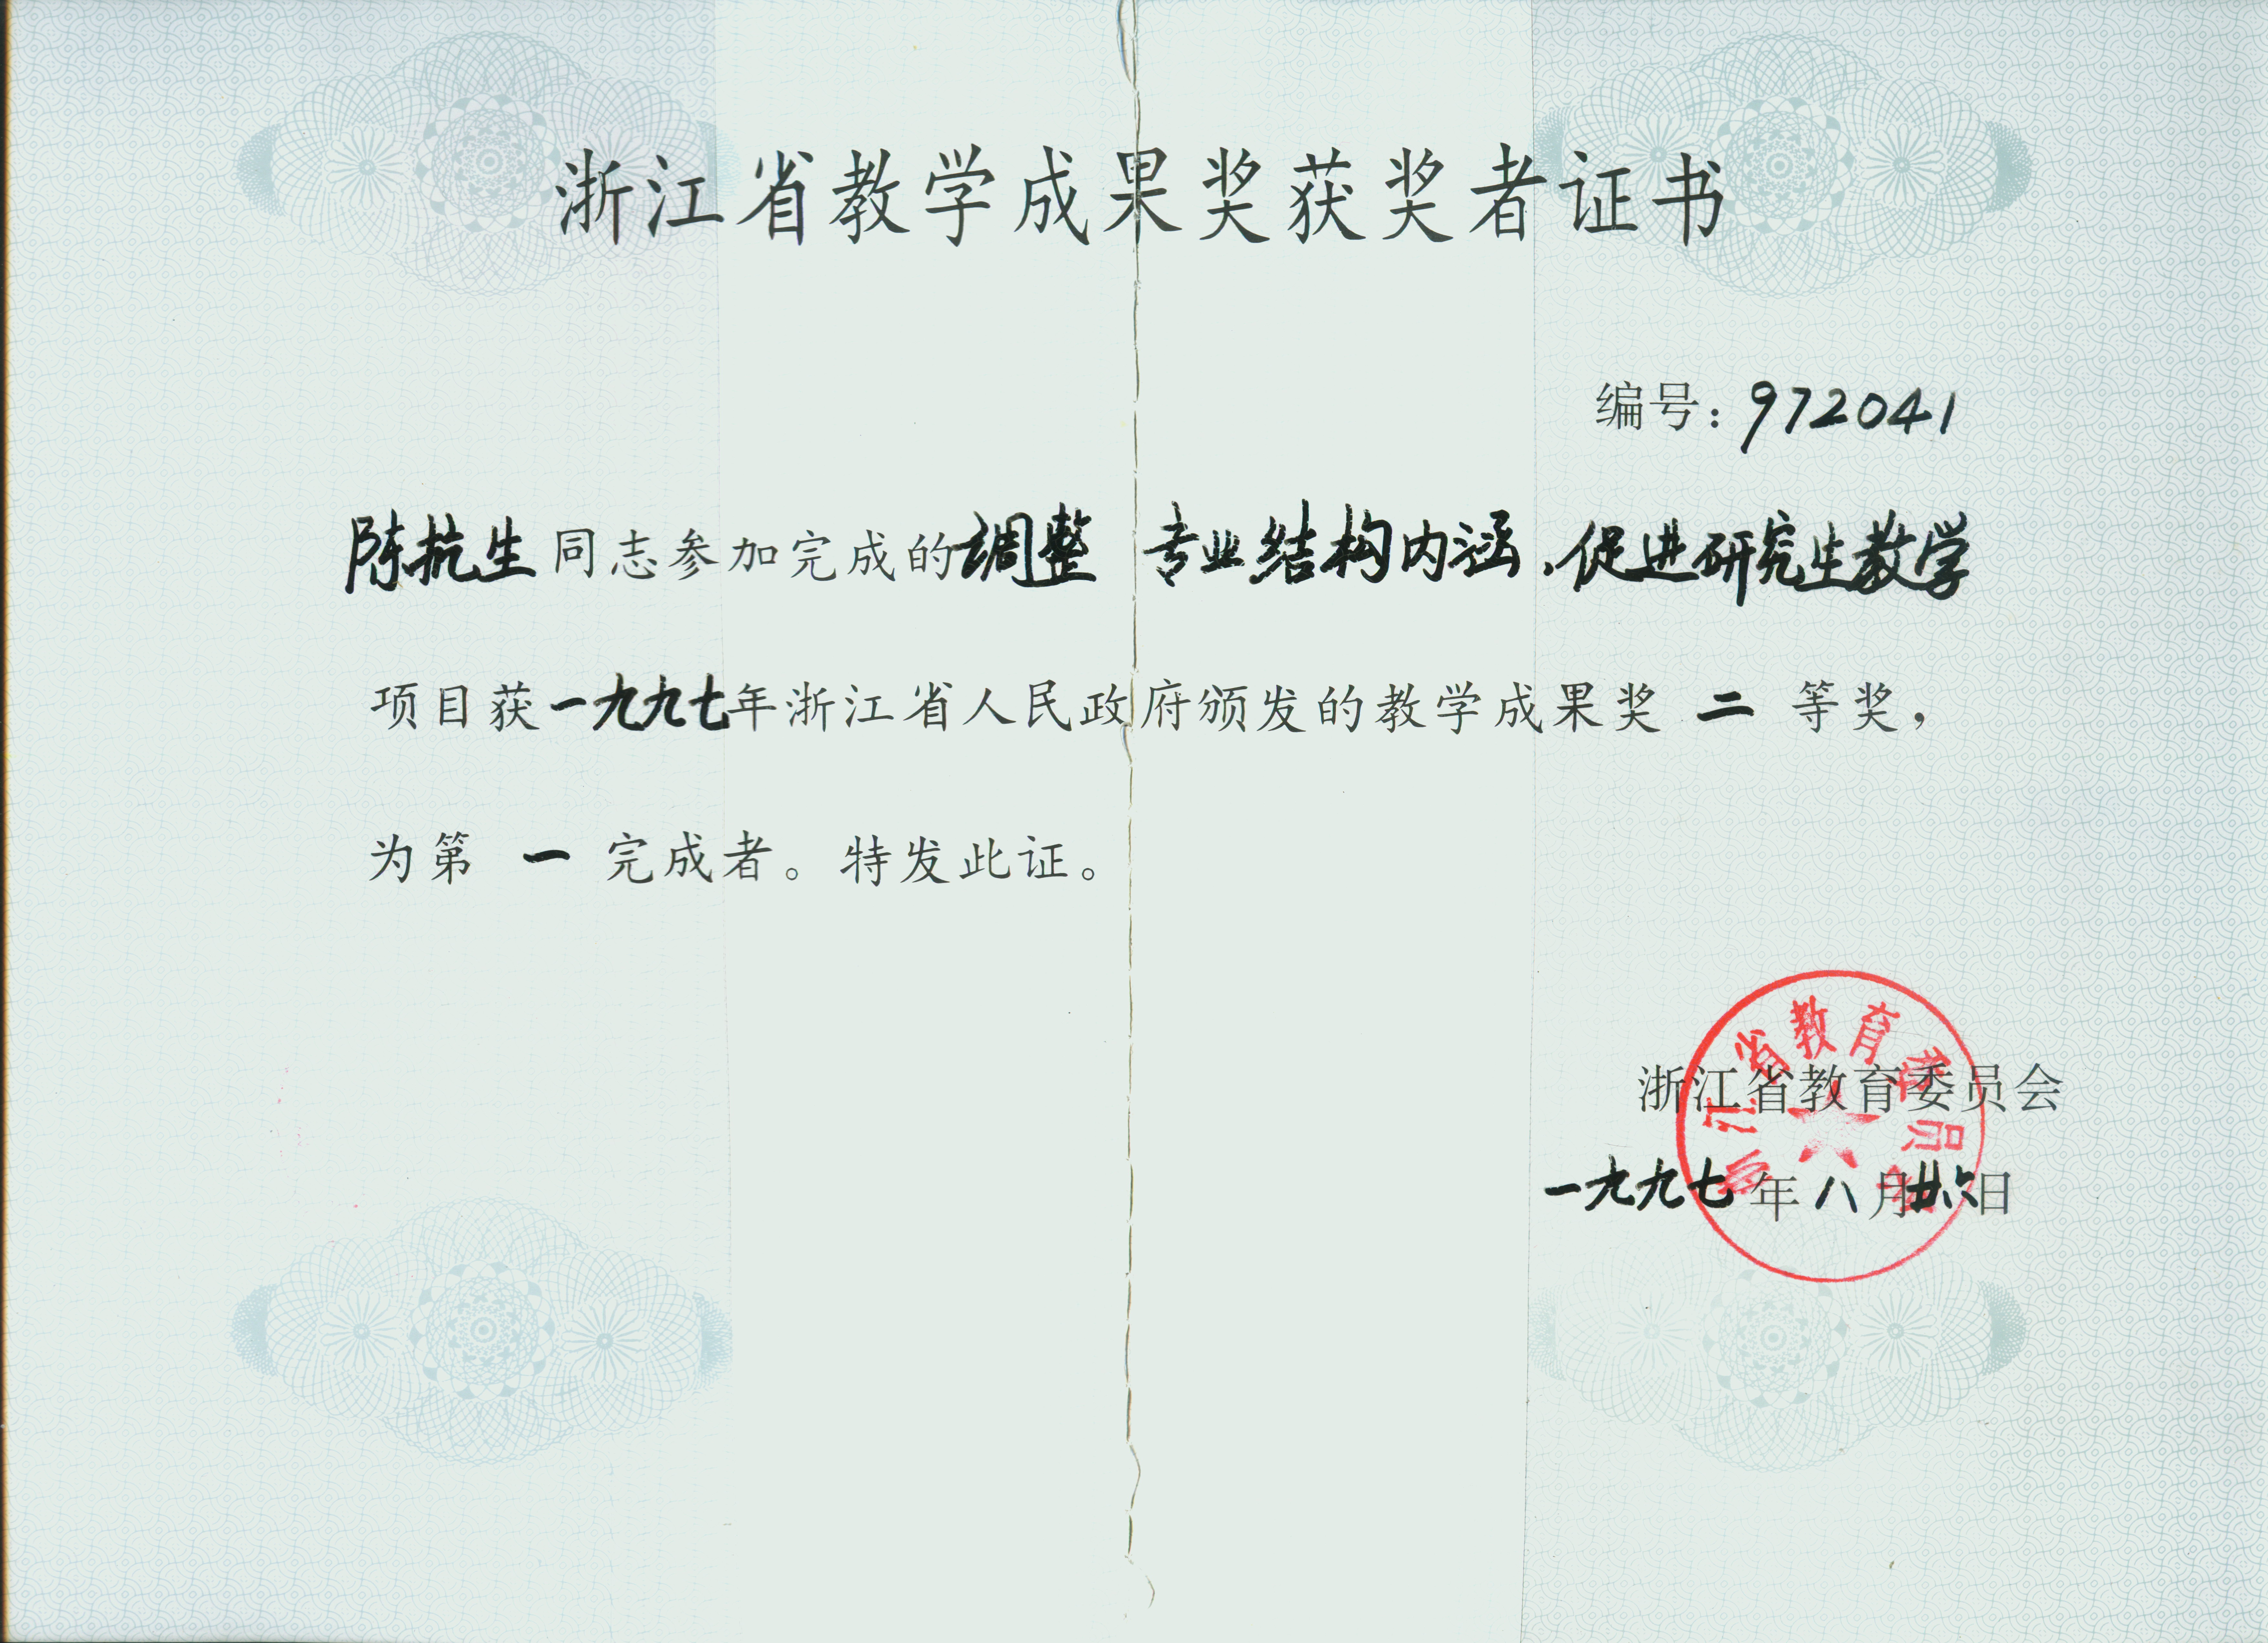 浙江省教学成果奖获奖者证书
编号：972041
陈抗生同志参加完成的调整专业结构内涵、促进研究生教学
项目获一九九七年浙江省人民政府颁发的教学成果奖 二 等奖，
为第 一 完成者。特发此证。
浙江省教育委员会
浙江省教育委员会
一九九七年八月廿六日